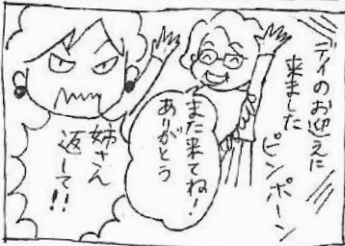 デイのお迎えに
来ました
ピンポーン
また来てね!
ありがとう
姉さん
返して!!